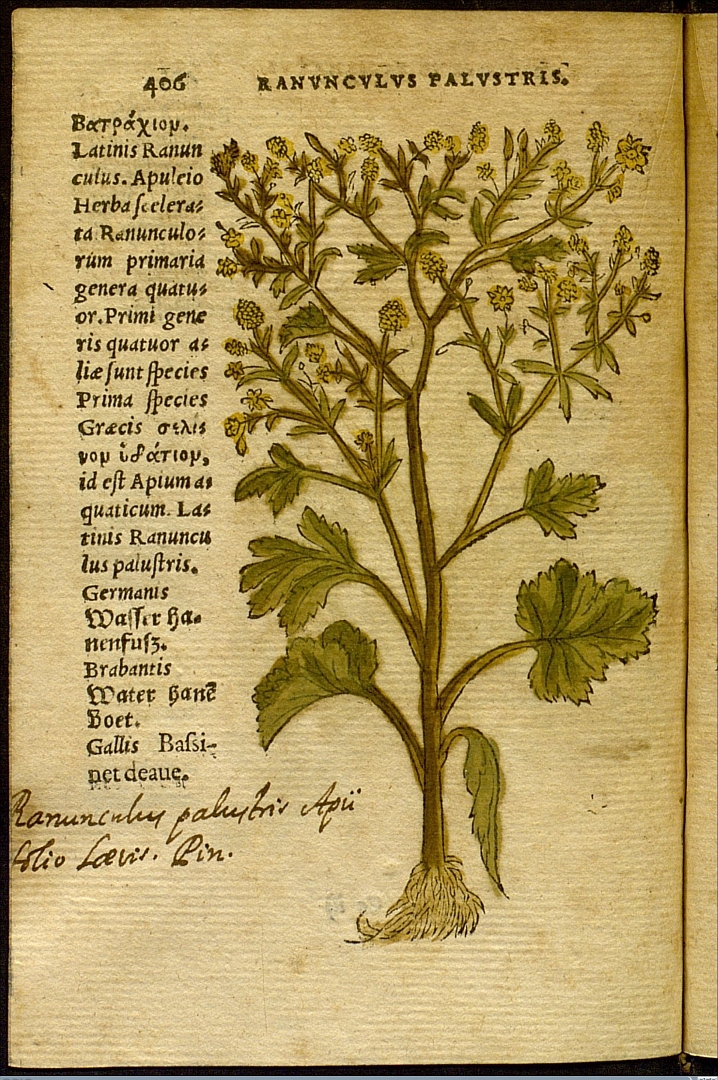 406 RANVNCVLVS PALVSTRIS.
Βατράχιον.
Latinis Ranun
culus. Apuleio
Herba ſcelera⸗
ta Ranunculo⸗
rum primaria
genera quatu⸗
or. Primi gene
ris quatuor a⸗
liæ ſunt ſpecies
Prima ſpecies
Græcis σελι⸗
νον ὑδάτιον,
id eſt Apium a⸗
quaticum. La⸗
tinis Ranuncu
lus paluſtris.
Germanis
Waſſer ha⸗
nenfuſz.
Brabantis
Water hanē
Boet.
Gallis Baſsi-
net deaue.
Ranunculus palustris Apii
folio Lævis. Pin.